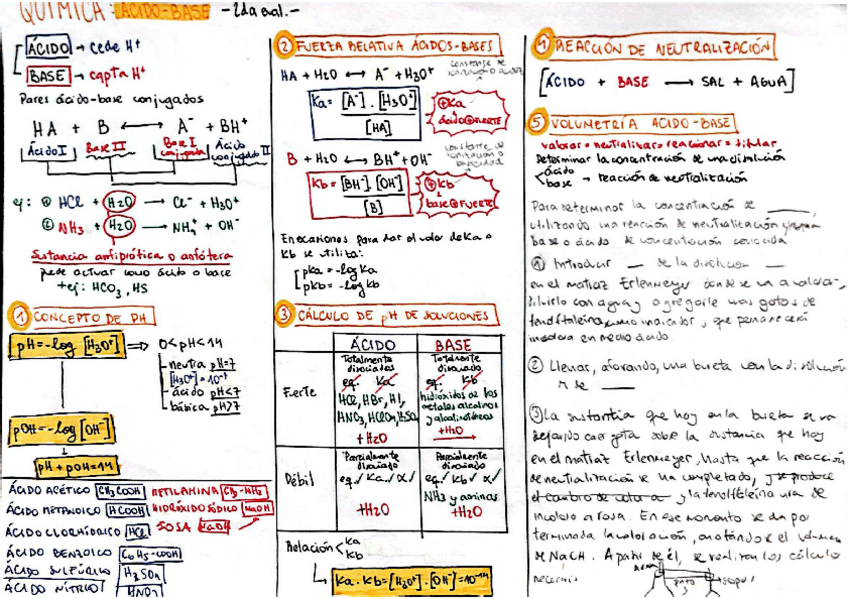 QUÍMICA: ÁCIDO-BASE - 2da eval.-
ÁCIDO → cede H⁺
BASE → capta H⁺
Pares ácido-base conjugados
HA + B ⟷ A⁻ + BH⁺
Ácido I Base II Base I conjugada Ácido conjugado II
ej: ① HCl + H₂O → Cl⁻ + H₃O⁺
② NH₃ + H₂O → NH₄⁺ + OH⁻
Sustancia antiprótica o anfótera
puede actuar como ácido o base
+ej: HCO₃, HS
① CONCEPTO DE PH
pH=-log [H₃O⁺] → 0<pH<14
neutra pH=7
[H₃O⁺]=10⁻⁷
ácido pH<7
básica pH>7
pOH=-log [OH⁻]
pH + pOH=14
ÁCIDO ACÉTICO CH₃COOH METILAMINA CH₃-NH₂
ÁCIDO METANOICO HCOOH HIDRÓXIDO SÓDICO NaOH
ÁCIDO CLORHÍDRICO HCl SOSA NaOH
ÁCIDO BENZOICO C₆H₅-COOH
ÁCIDO SULFÚRICO H₂SO₄
ÁCIDO NÍTRICO HNO₃
② FUERZA RELATIVA ÁCIDOS-BASES
constante de
HA + H₂O ⟷ A⁻ + H₃O⁺
Ka = [A⁻] . [H₃O⁺]
[HA]
⊕Ka
ácido⊕FUERTE
constante de
B + H₂O ⟷ BH⁺ + OH⁻
Kb = [BH⁻] [OH⁻]
[B]
⊕Kb
base⊕FUERTE
En ocasiones para dar el valor de Ka o
Kb se utiliza:
pKa = -log Ka
pKb = -log Kb
③ CÁLCULO DE pH DE SOLUCIONES
ÁCIDO BASE
Fuerte
Totalmente disociados
eq. Ka
HCl, HBr, HI,
HNO₃, HClO₄, H₂SO₄
+ H₂O
Totalmente disociado
eq. Kb
hidróxidos de los
metales alcalinos
y alcalinotérreos
+H₂O
Débil
Parcialmente disociado
eq.✓ Ka✓ α✓
+H₂O
Parcialmente disociado
eq.✓ Kb✓ α✓
NH₃ y aminas
+H₂O
Relación < Ka
Kb
Ka . Kb = [H₃O⁺] . [OH⁻] = 10⁻¹⁴
④ REACCIÓN DE NEUTRALIZACIÓN
[ÁCIDO + BASE → SAL + AGUA]
⑤ VOLUMETRÍA ACIDO-BASE
valorar = neutralizar = reaccionar = titular
Determinar la concentración de una disolución
ácido
base → reacción de neutralización
Para determinar la concentración de ____
utilizando una reacción de neutralización
base o ácido de concentración conocida
① Introducir __ de la disolución __
en el matraz Erlenmeyer donde se va a valorar,
diluirlo con agua y agregarle unas gotas de
fenolftaleína, como indicador, que permanecerá
incolora en medio ácido.
② Llenar, aforando, una bureta con la disolución
____
③ La sustancia que hay en la bureta se va
dejando caer gota sobre la sustancia que hay
en el matraz Erlenmeyer, hasta que la reacción
de neutralización se ha completado, y se produce
el cambio de color a y la fenolftaleína vira de
incoloro a rosa. En ese momento se da por
terminada la valoración, anotándose el volumen
de NaOH. A partir de él, se realizan los cálculo